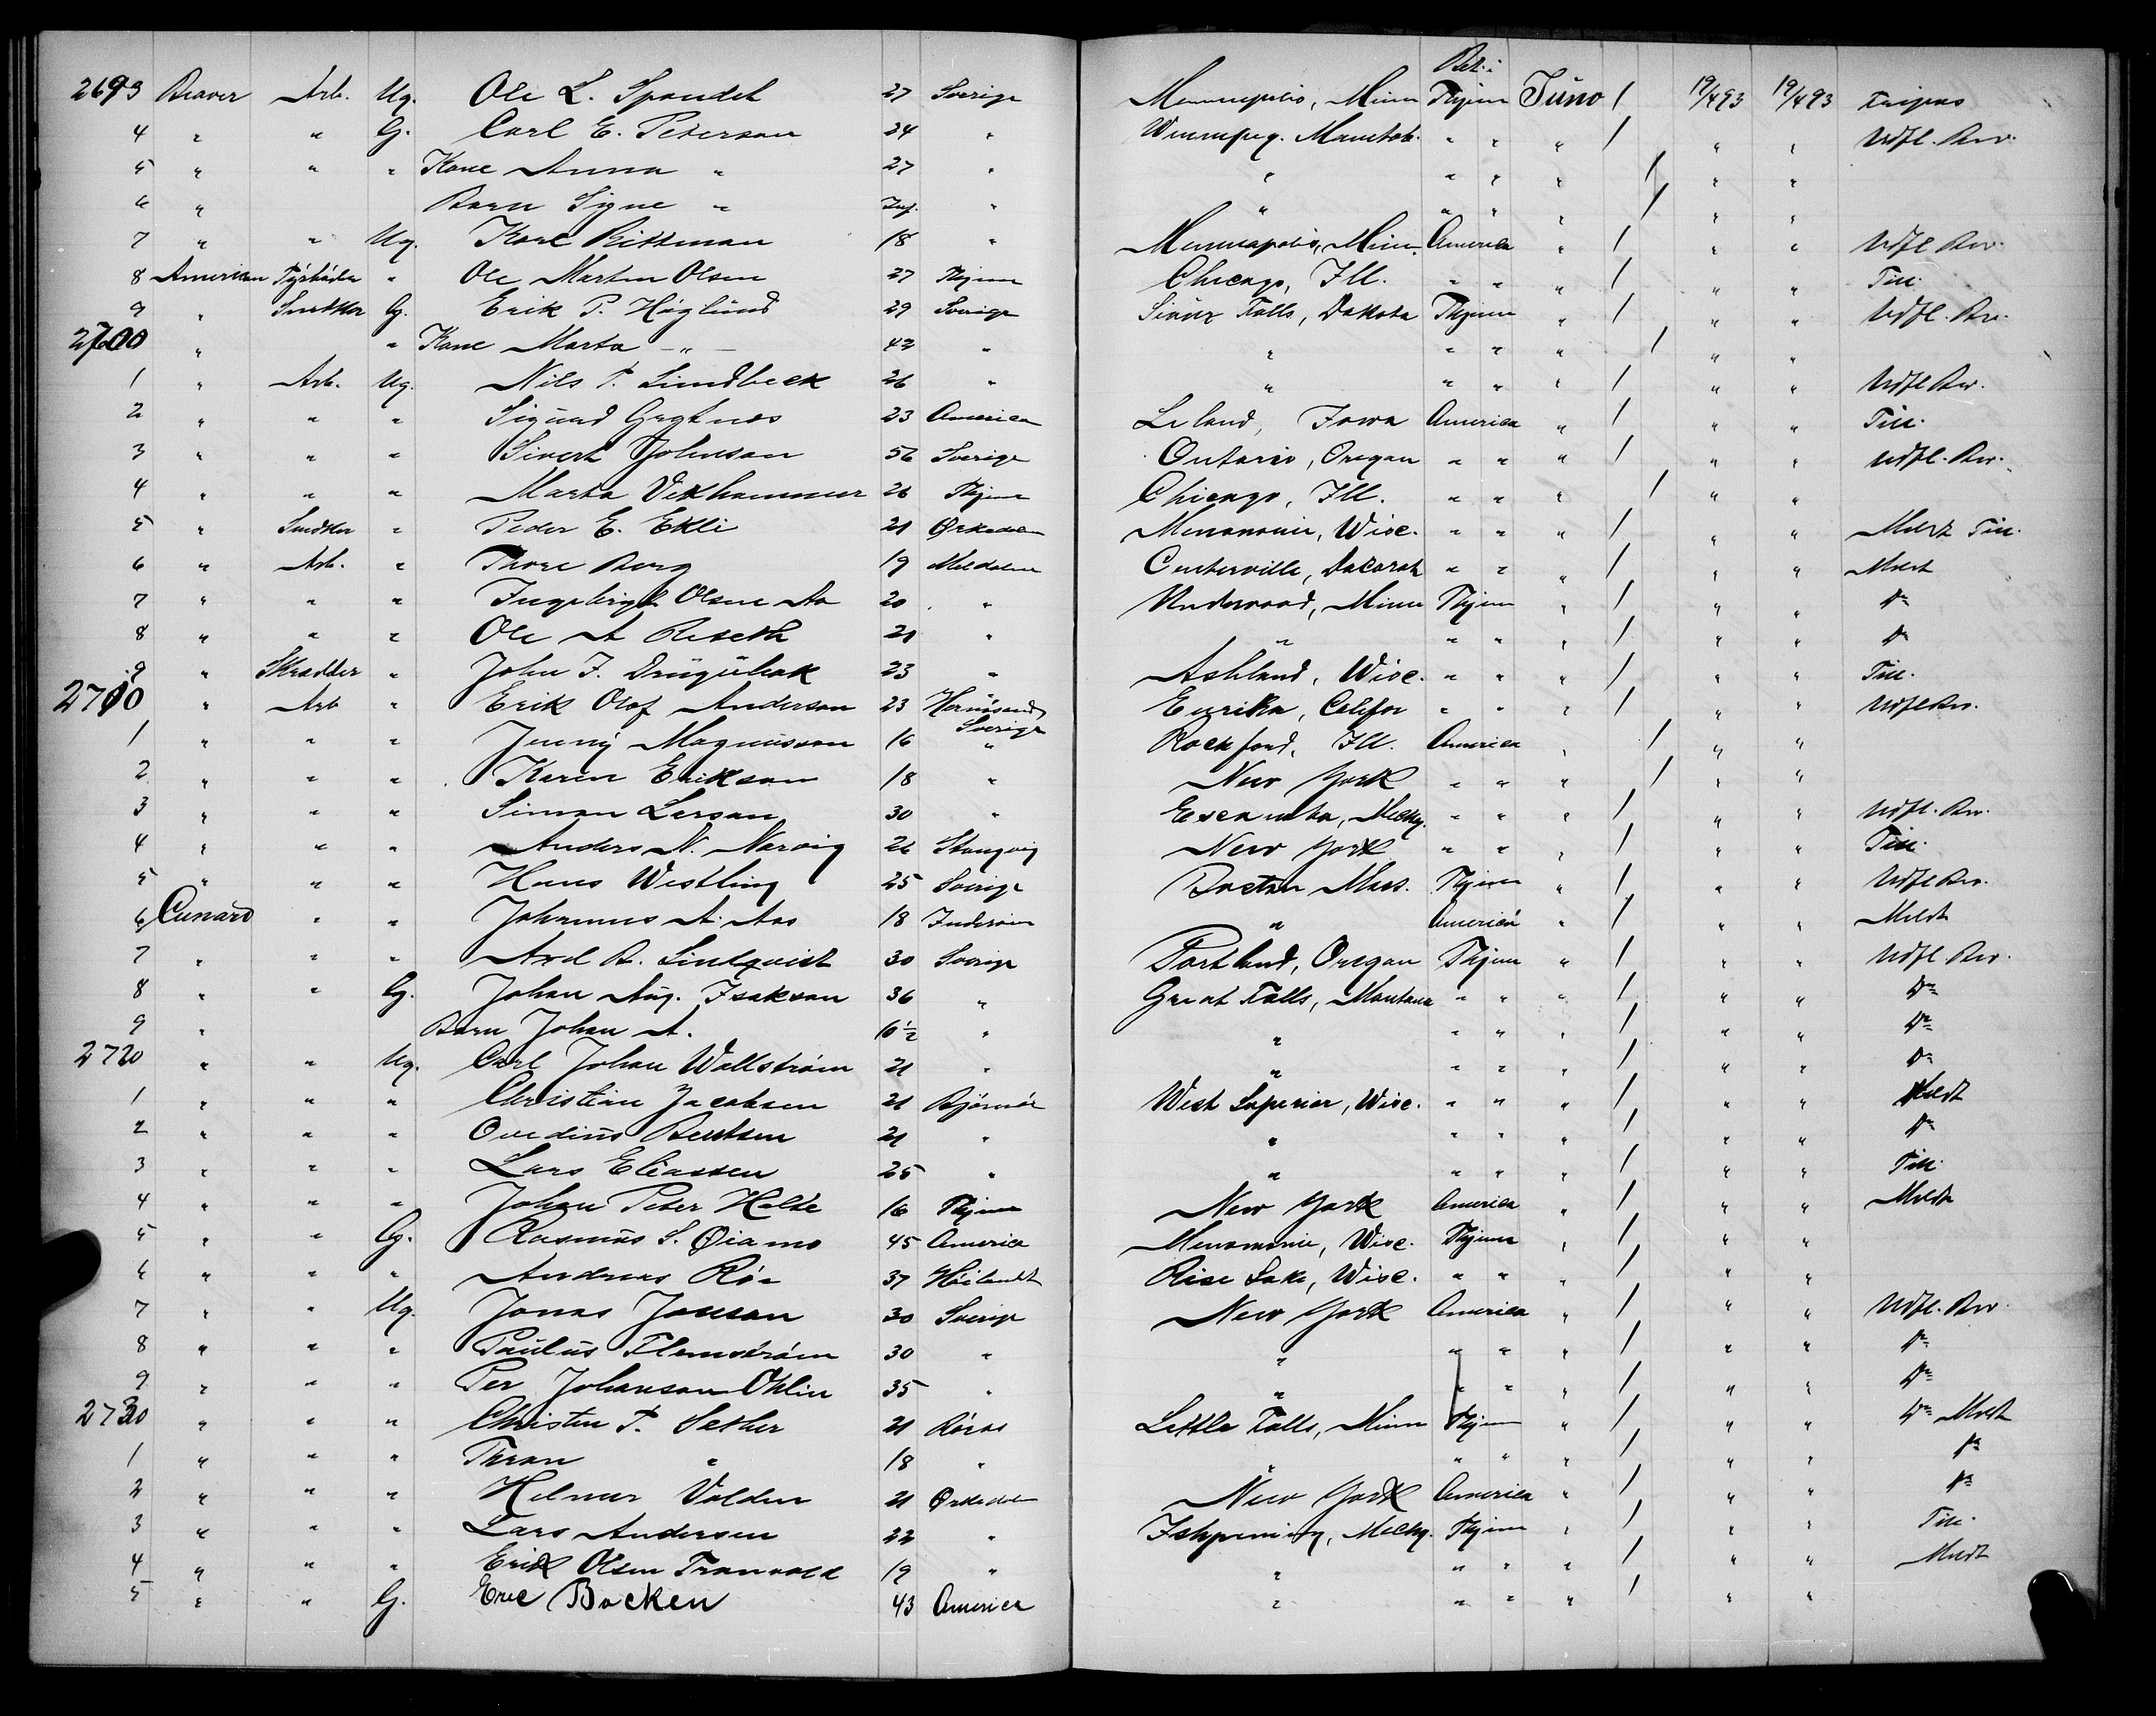 Bet:
2693 Beaver Arb. Ug. Ole L. Spondet 27 Sverige Minneapolis, Minn Thjem Juno / 19/4 93 19/4 93 Fripas
4 " " G. Carl E. Peterson 24 " Winnipeg. Manitob. " " " / " " Udfl. Bev.
5 " " " Kone Anna " 27 " " " " " / " "
6 " Barn Signe " Inf. " " " " " / " "
7 " " Ug. Karl Rittman 18 " Minneapolis, Minn. America " / " " Udfl Bev.
8 American " Ole Martin Olsen 27 Thjem Chicago, Ill. " " " / " " Till.
9 " Snedker G. Erik P. Höglund 29 Sverige Sioux Falls, Dakota Thjem " / " " Udfl. Bev.
2700 " " Kone Marta — " — 42 " " " " " / " "
1 " Arb. Ug. Nils P. Lindbeck 26 " " " " " / " " Udfl Bev.
2 " " " Sigurd 23 America Leland, Iowa America " / " " Till.
3 " " " Sivert Johnson 56 Sverige Ontario, Oregon " " " / " " Udfl. Bev.
4 " " " Marta Vekhammer 26 Thjem Chicago, Ill. " " " / " "
5 " Snedker " Peder E. Ekli 21 Ørkedalen Menomonie, Wisc. " " " / " " Meldt Till.
6 " Arb. " Thore Berg 19 Meldalen Centerville, Dacorah " " " / " " Meldt
7 " " " Ingebrigt Olsen Aa 20 " Underwood, Minn Thjem " / " " Do
8 " " " Ole A Reseth 21 " " " " " / " " Do
9 " Skrædder " John J. Drugudal 23 " Ashland, Wisc. " " " / " " Till.
2710 " Arb " Erik Olof Anderson 23 Hernösand, Sverige Eurika, Califor " " " / " " Udfl Bev.
1 " " " Jenny Magnusson 16 " Rockford, Ill. America " / " "
2 " " " Karin Erikson 18 " New York " " " / " "
3 " " " Simon Larson 30 " Escanaba, Michg. " " " / " " Udfl. Bev.
4 " " " Anders N. Norvig 26 Stangvig New York " " " / " " Till.
5 " " " Hans Westling 25 Sverige Boston Mass. Thjem " / " " Udfl Bev.
6 Cunard " " Johannes A. Aas 18 Inderøen " America " / " " Meldt
7 " " " Axel B. Lindqvist 30 Sverige Portland, Oregon Thjem " / " " Udfl Bev.
8 " " G. Johan Aug. Isakson 36 " Great Falls, Montana " " " / " " Do
9 " Barn Johan A. 10½ " " " " " / " " Do
2720 " " Ug. Carl Johan Wallström 21 " " " " " / " " Do
1 " " " Christian Jacobsen 21 Bjørnør West Superior, Wisc. " " " / " " Meldt
2 " " " Ovedius Bentsen 21 " " " " " / " " Do
3 " " " Lars Eliassen 25 " " " " " / " " Till.
4 " " " Johan Peter Holte 16 Thjem New York America " / " " Meldt
5 " " G. Rasmus S. Øiamo 45 America Menomonie, Wisc. Thjem " / " "
6 " " " Andreas Röe 37 Höilandet Rise Lake, Wisc. " " " / " "
7 " " Ug. Jonas Jonson 30 Sverige New York America " / " " Udfl. Bev.
8 " " " Paulus Flemström 30 " " " " " / " " Do
9 " " " Per Johanson Ohlin 35 " " " " " / " " Do
2730 " " " Christen P. Sether 21 Röros Little Falls, Minn Thjem " / " " Do Meldt
1 " " " Thran " 18 " " " " " / " " Do
2 " " " Helmer Volden 21 Ørkedalen New York America " / " " Do
3 " " " Lars Andersen 22 " Ishpeming, Michg. Thjem " / " " Till.
4 " " " Erik Olsen Tranvold 19 " " " " " / " " Meldt
5 " " G. Eric Bocken 43 America " " " " / " "